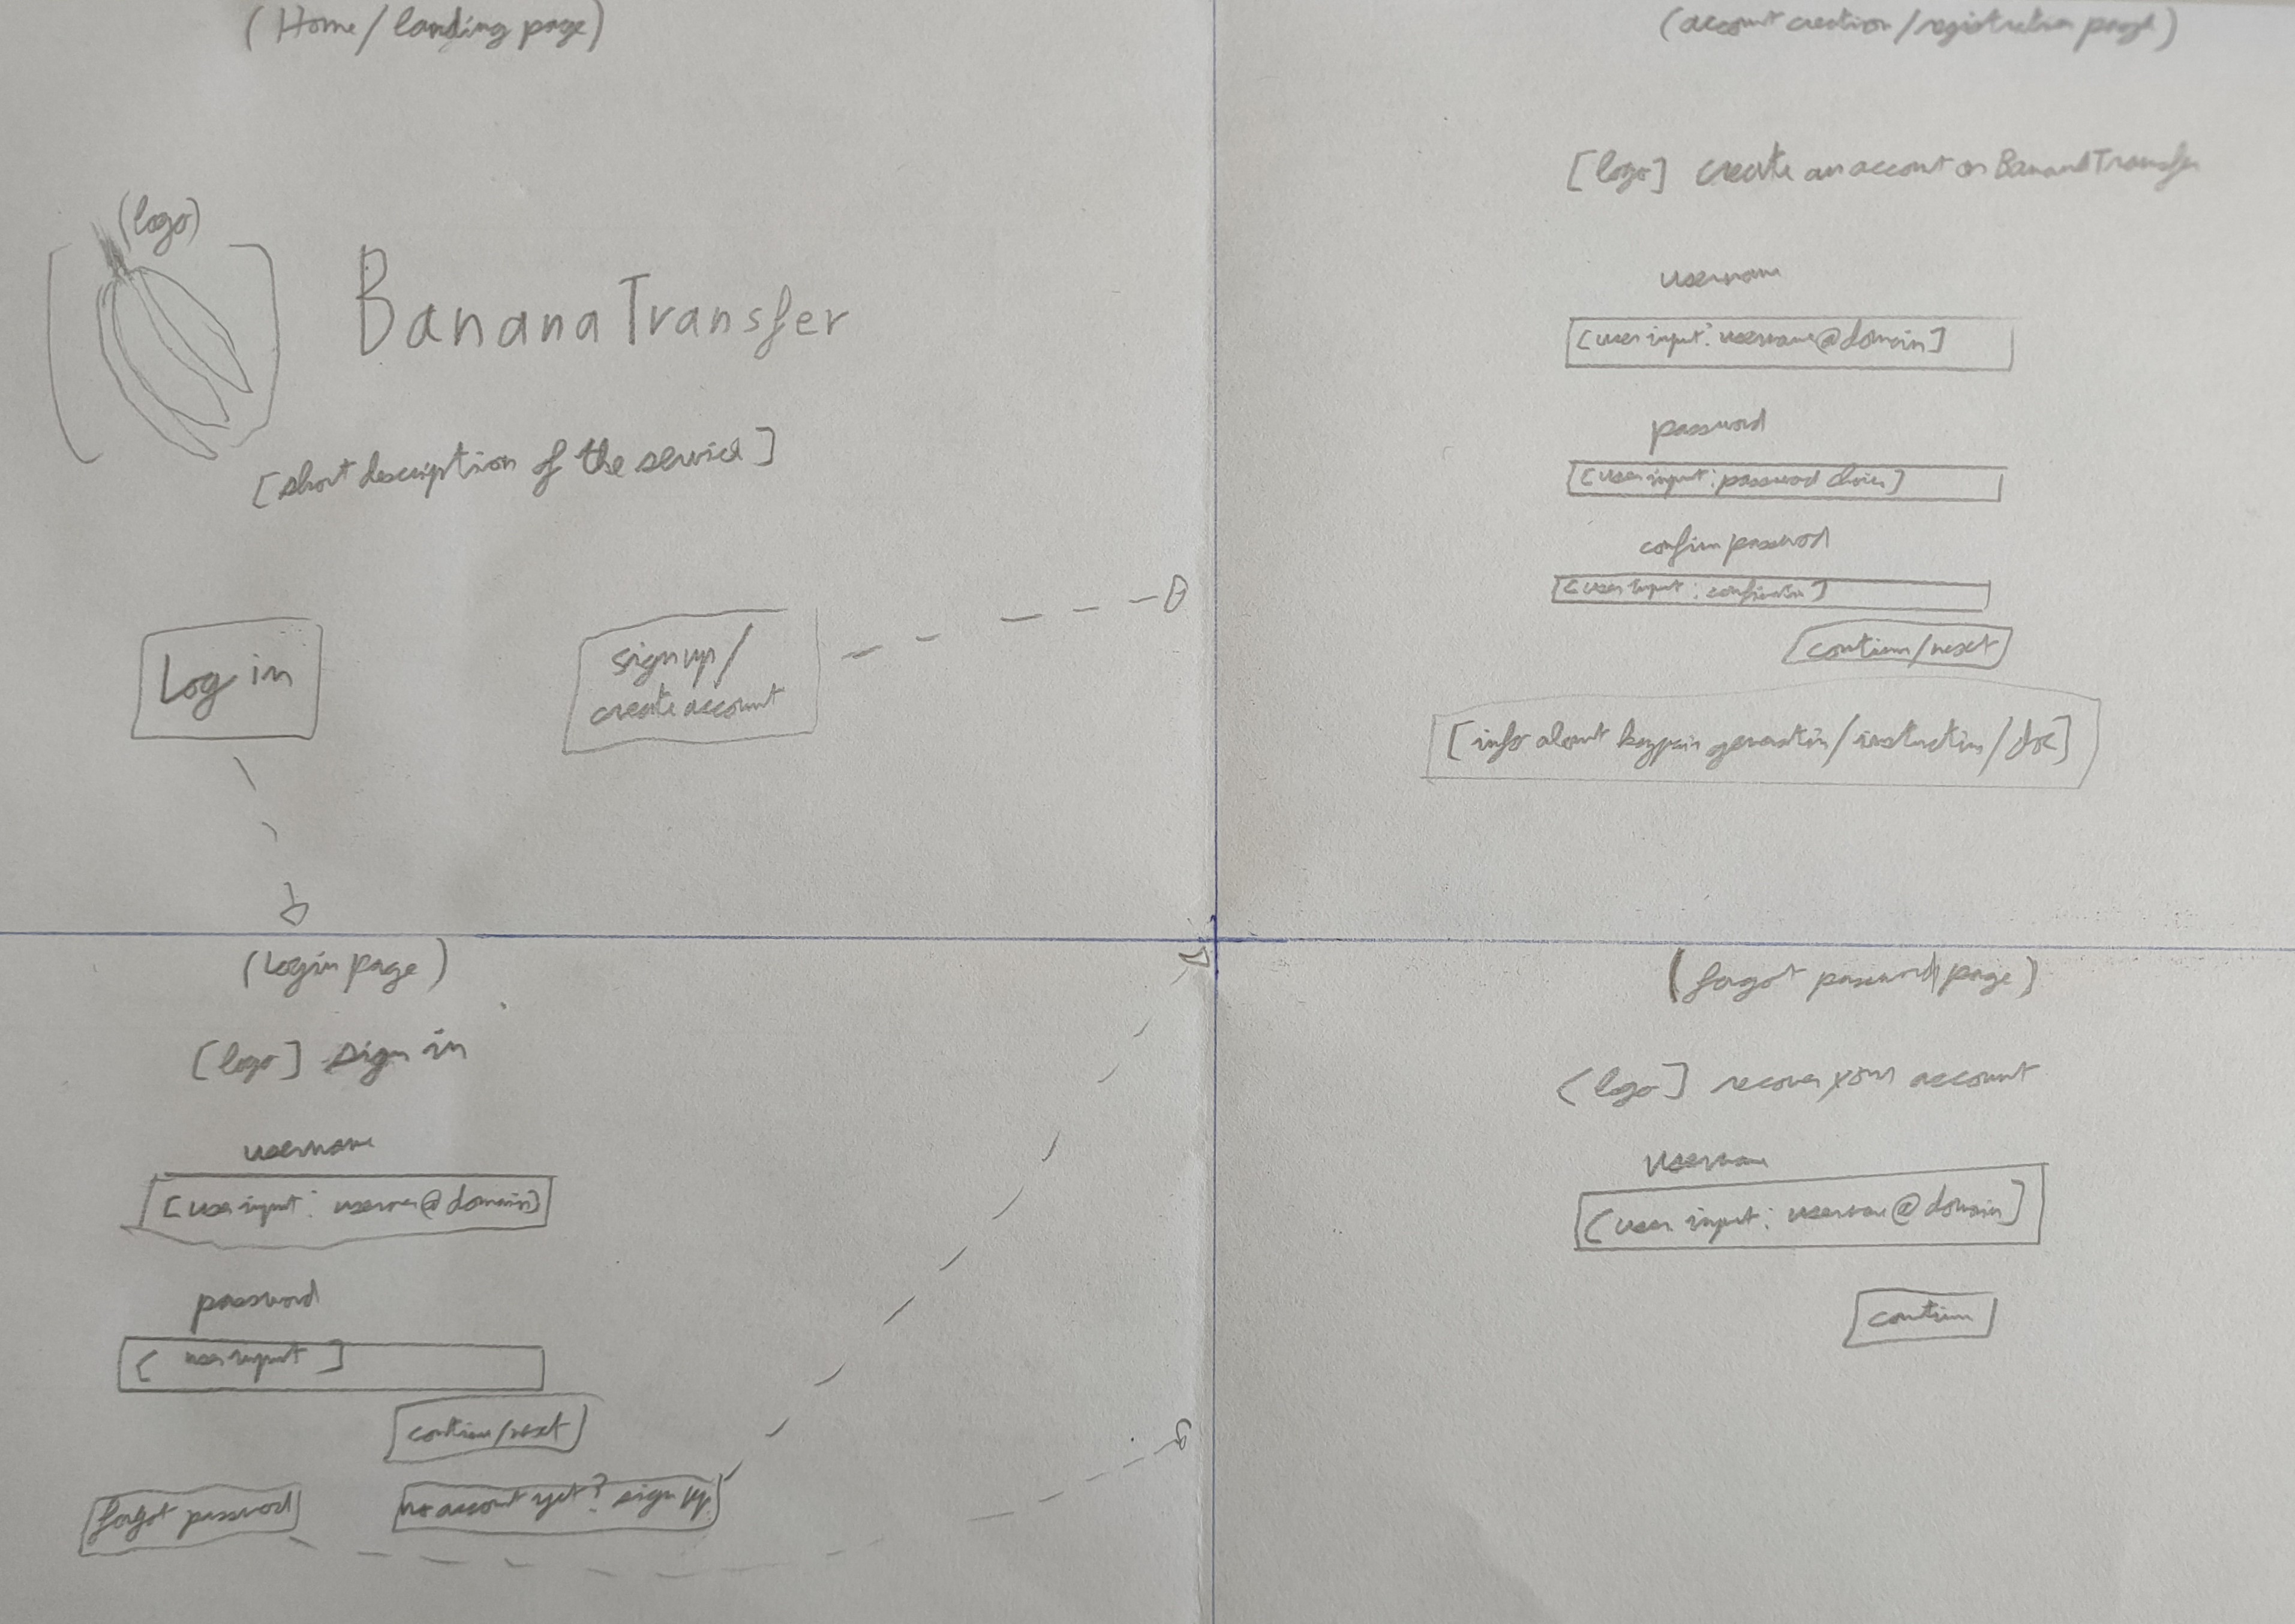 (Home/landing page)
(logo)
BananaTransfer
[short description of the service]
Log in
sign up/
create account
(account creation/registration page)
[logo] create an account on BananaTransfer
username
[user input: username@domain]
password
[user input: password choice]
confirm password
[user input: confirmation]
continue/next
[info about keypair generation/instruction/doc]
(Login page)
[logo] sign in
username
[user input: username@domain]
password
[user input]
continue/next
forgot password
no account yet? sign up
(forgot password page)
[logo] recover your account
username
[user input: username@domain]
continue